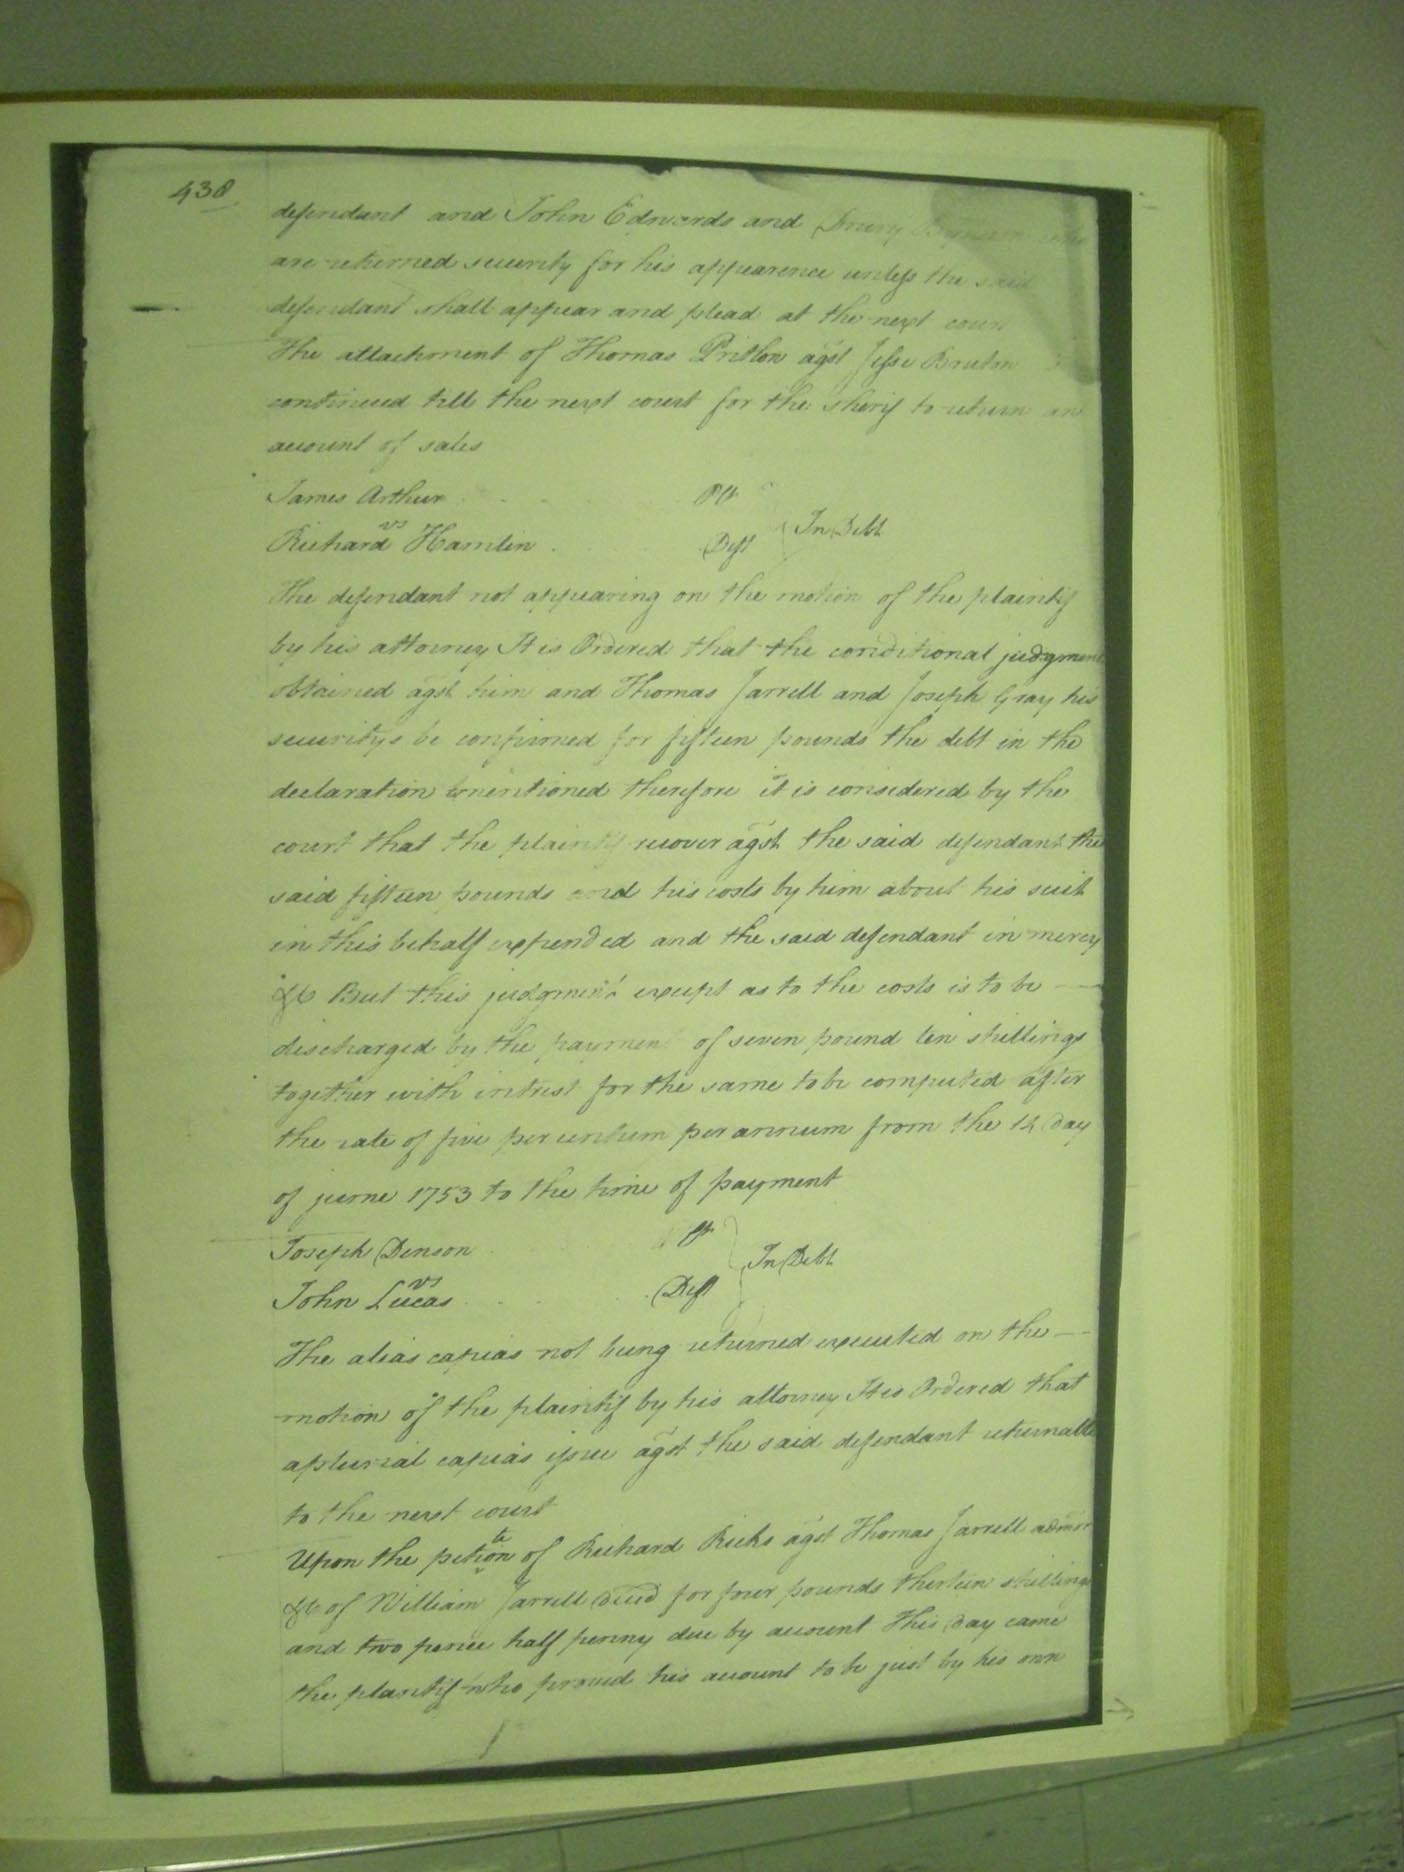 438
defendant and John Edwards and Drury
are returned security for his appearence unless the said
defendant shall appear and plead at the next cour
The attachment of Thomas agst Jesse Bruton
continued till the next court for the sherif to return an
account of sales
James Arthur Plt
vs In Debt
Richard Hamlin Deft
The defendant not appearing on the motion of the plaintif
by his attorney It is Ordered that the conditional judgment
obtained agst him and Thomas Jarrell and Joseph Gray his
securitys be confirmed for fifteen pounds the debt in the
declaration mentioned therefore it is considered by the
court that the plaintif recover agst the said defendant the
said fifteen pounds and his costs by him about his suit
in this behalf expended and the said defendant in mercy
&c But this judgment except as to the costs is to be
discharged by the payment of seven pound ten shillings
together with intrest for the same to be computed after
the rate of five per centum per annum from the 14 day
of june 1753 to the time of payment
Joseph Denson Plt
vs In Debt
John Lucas Deft
The alias capias not being returned executed on the
motion of the plaintif by his attorney It is Ordered that
a plurial capias issue agst the said defendant returnable
to the next court
Upon the petition of Richard Ricks agst Thomas Jarrell admor
&c of William Jarrell decd for four pounds thirteen shillings
and two pence half penny due by account This day came
the plantif who proved his account to be just by his own